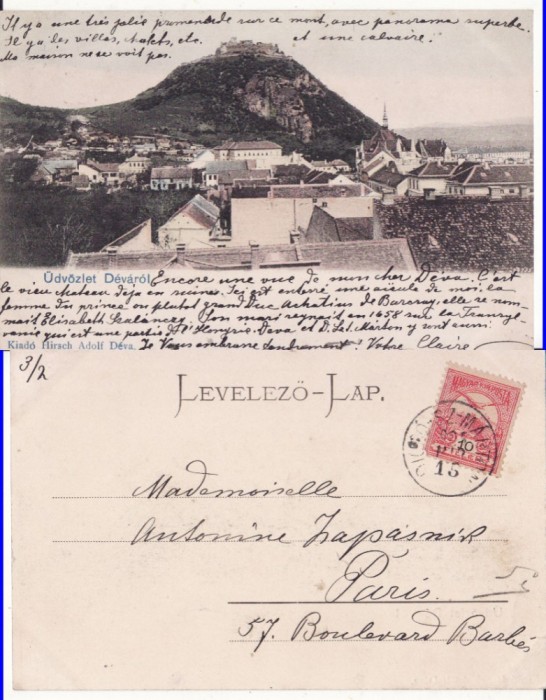 Il y a une très jolie promenade sur ce mont, avec panorama superbe.
Il y a les, villas, chalets, etc. et une calvaire.
Ma maison ne se voit pas.
Üdvözlet Déváról
Encore une vue de mon cher Déva. C'est
le vieu chateau déjà en ruine. Ici est enterré une aïeule de moi, la
femme du prince ou plutot grand duc Arkatius de Barcsay, elle se nom-
mait Elisabeth Szalánczy. Son mari regnait en 1658 sur la Transyl-
vanie qui est une partie d'Hongrie. Déva et D. Szt. Márton y sont aussi.
Kiadó Hirsch Adolf Déva.
Je Vous embrasse tendrement! Votre Claire
3/2
LEVELEZŐ-LAP.
MAGYAR KIR. POSTA
10
15
Mademoiselle
Antonine Zapasnik
Paris.
57. Boulevard Barbès